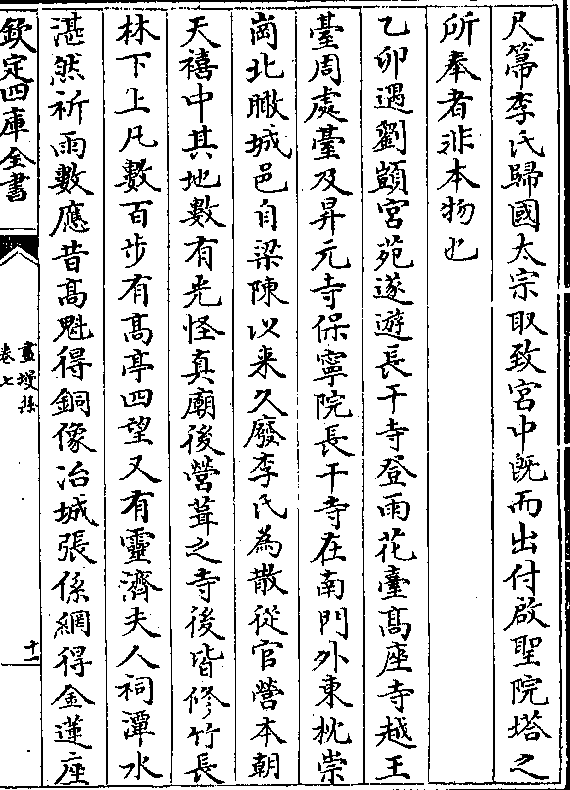 尺篰李氏歸國太宗取致宮中旣而出付啟聖院塔之
所奉者非本物也
乙卯遇劉顗宮苑遂遊長干寺登雨花臺高座寺越王
臺周處臺及昇元寺保寧院長干寺在南門外東枕崇
崗北瞰城邑自梁陳以来久廢李氏為散從官營本朝
天禧中其地數有光怪真廟後營葺之寺後皆修竹長
林下上凡數百步有高亭四望又有靈濟夫人祠潭水
湛然祈雨數應昔高魁得銅像冶城張係網得金蓮座
欽定四庫全書
畫墁集
卷七
十一